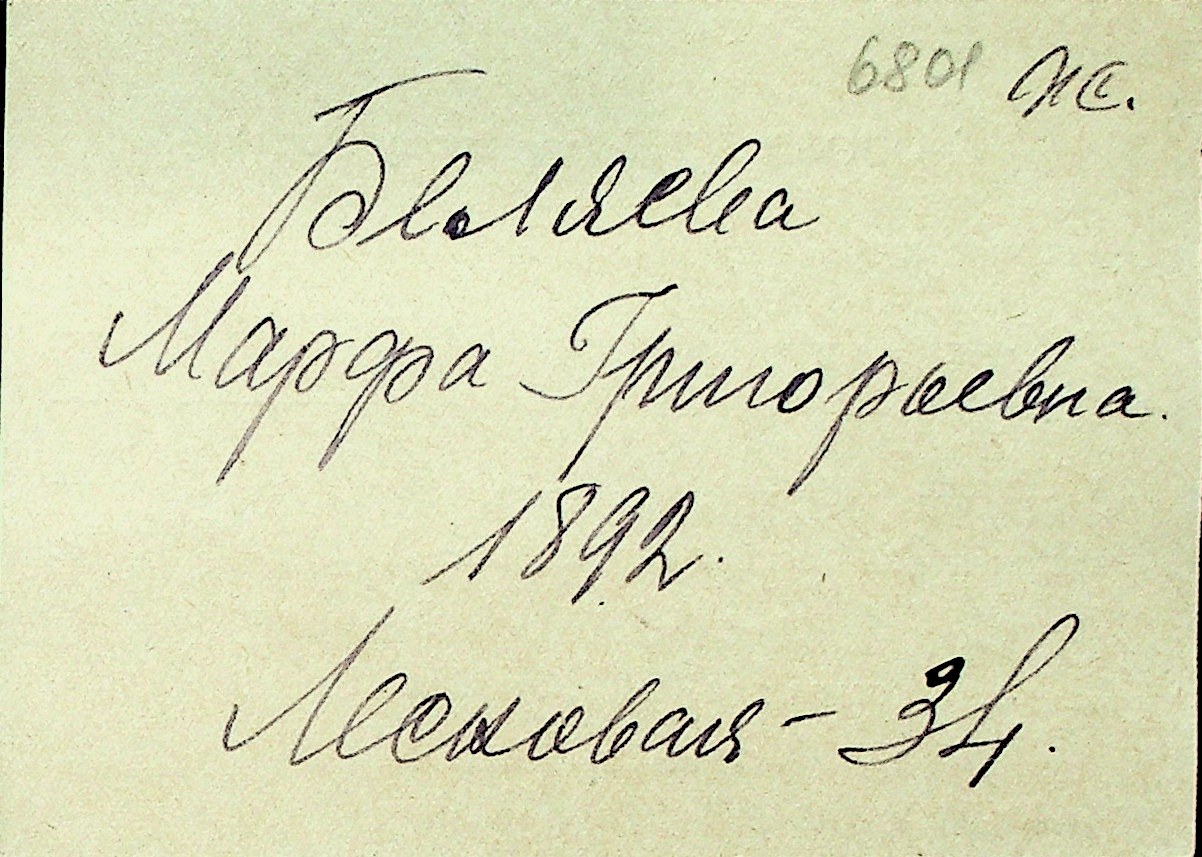 6801 Ж.
Беляева
Марфа Григорьевна.
1892.
Лесновая - 34.